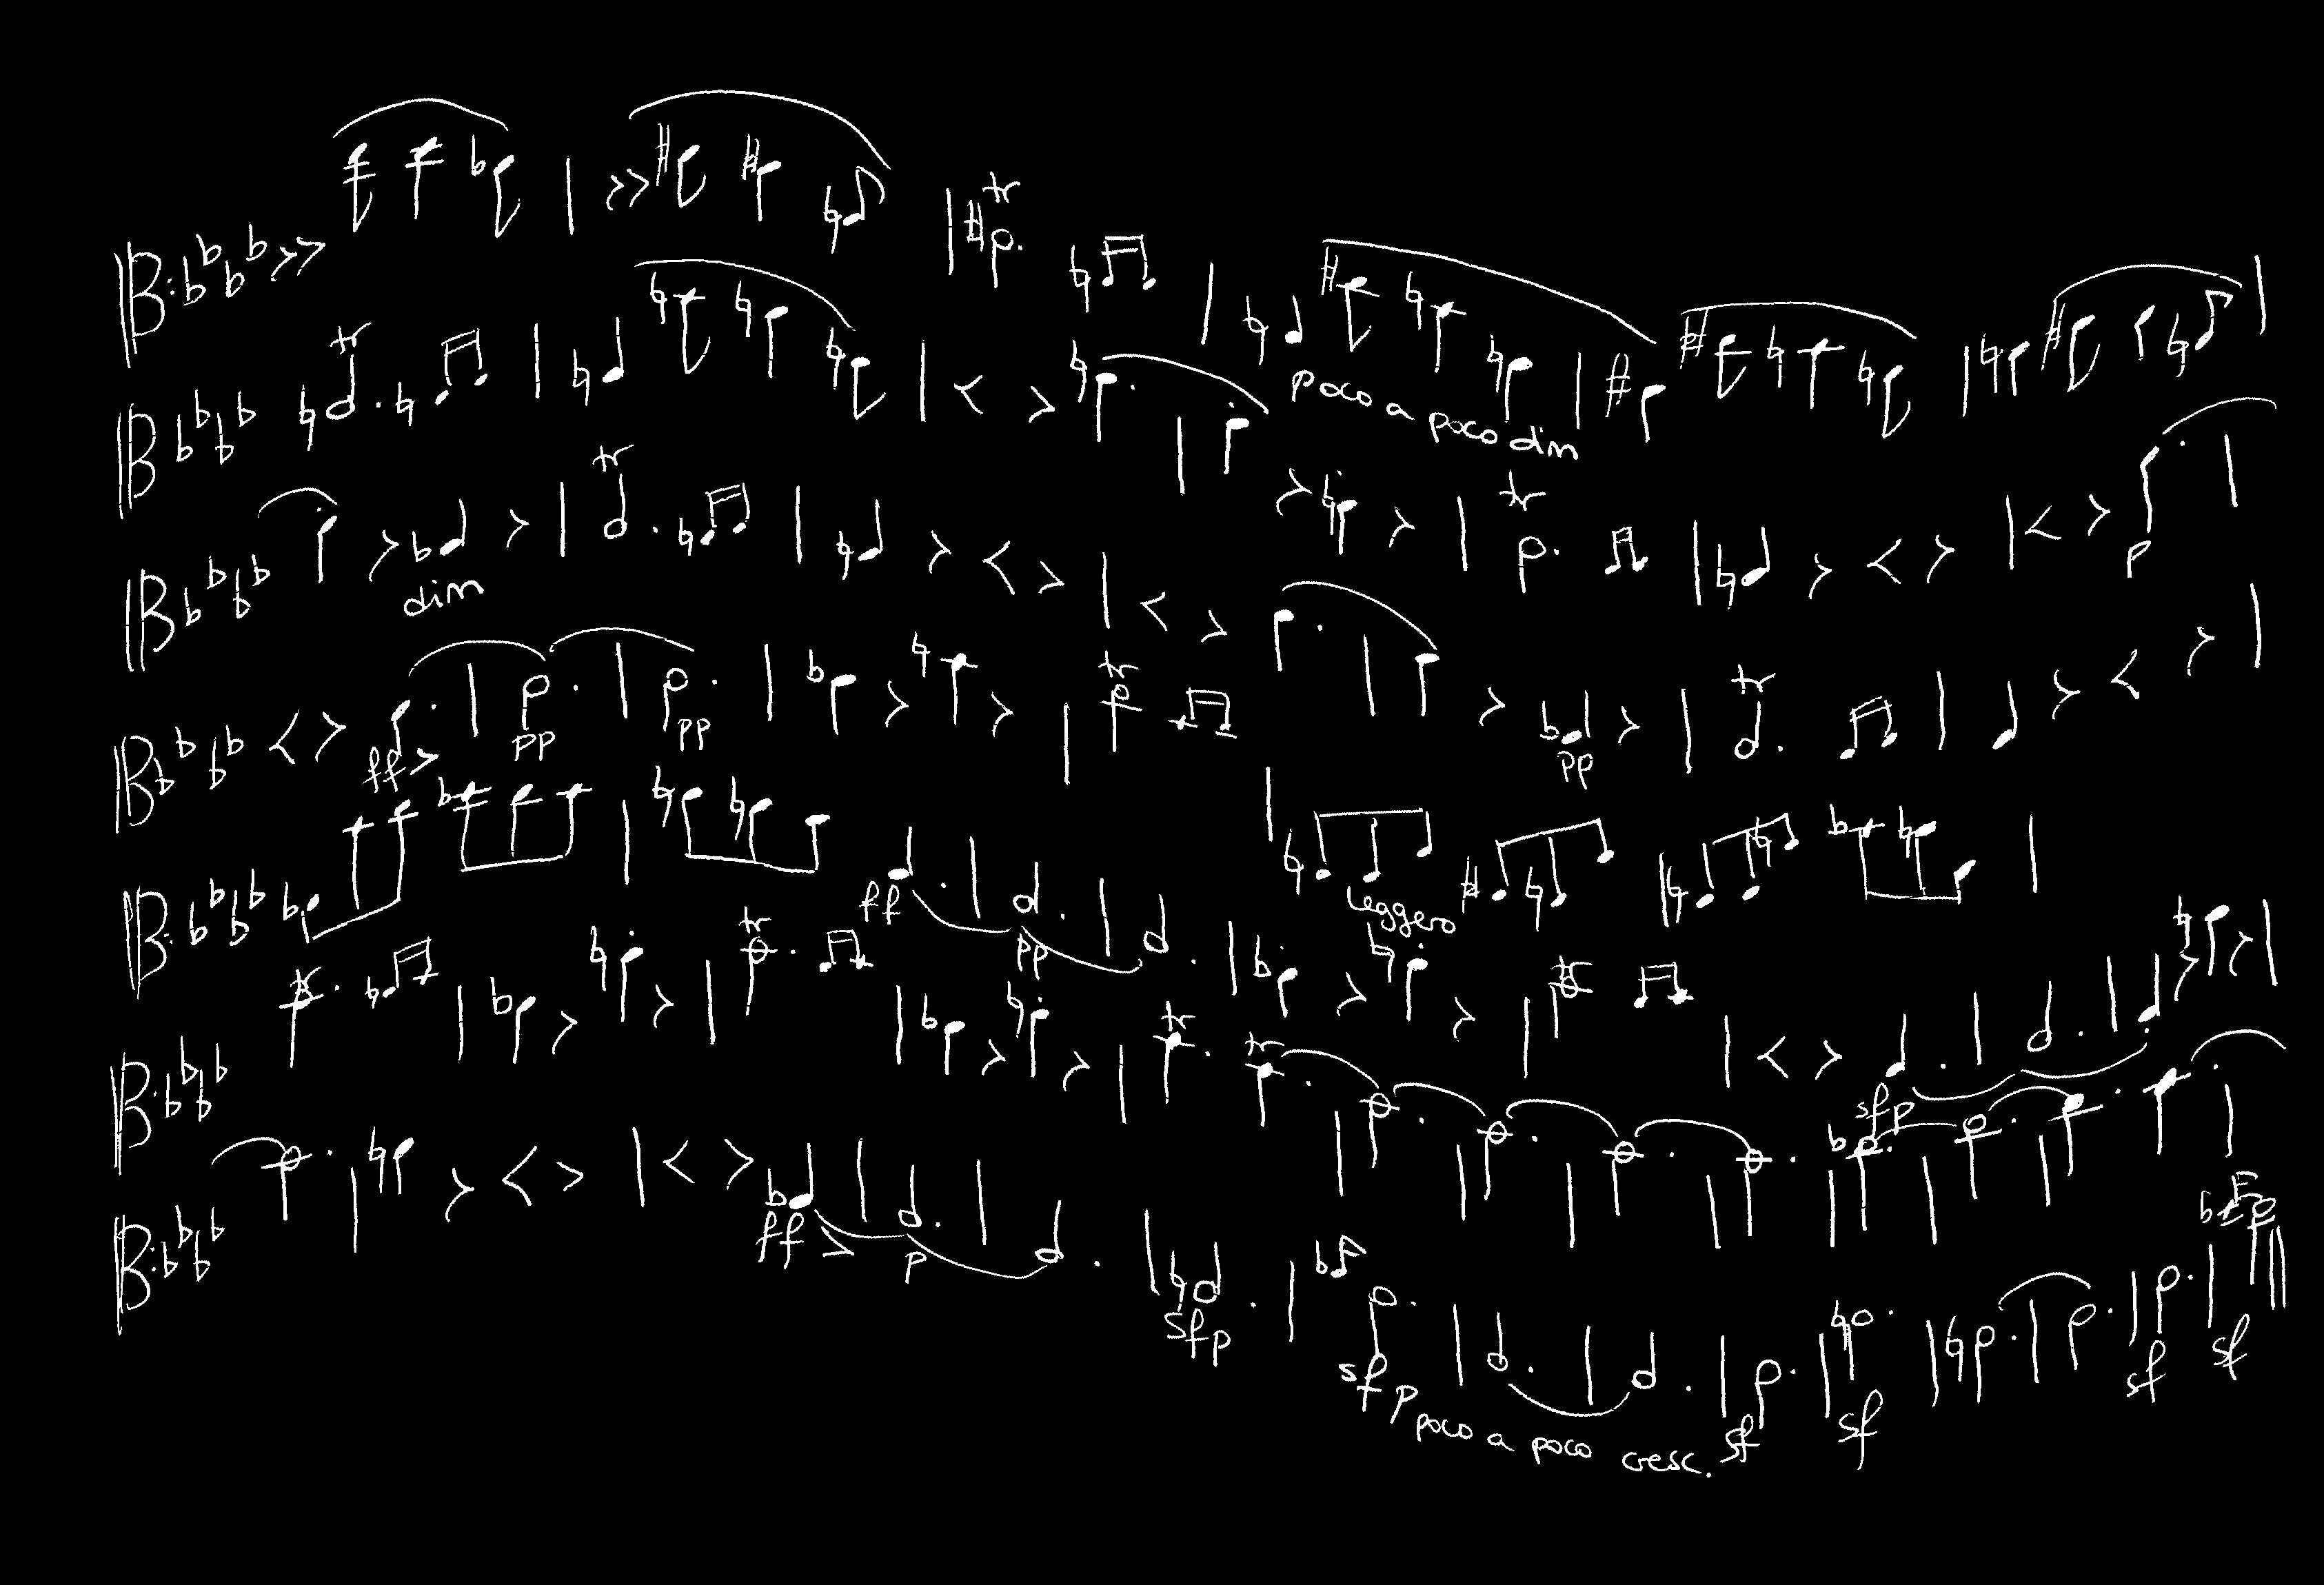 tr
poco a poco dim
tr
tr
tr
dim
p
tr
tr
ff
pp
pp
pp
ff
pp
leggero
tr
tr
tr
tr
tr
sfp
ff
p
sfp
sfp
poco a poco cresc.
sf
sf
sf
sf